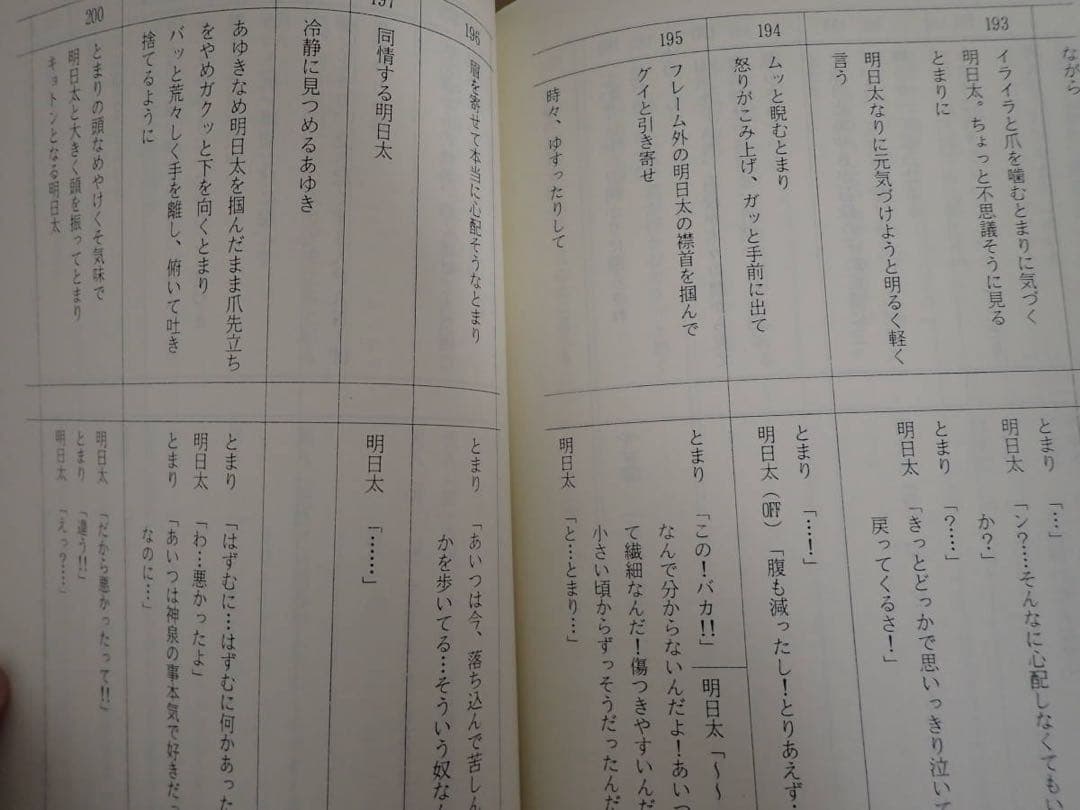 ながら
193
イライラと爪を噛むとまりに気づく
明日太。ちょっと不思議そうに見る
とまりに
明日太なりに元気づけようと明るく軽く
言う
とまり 「…」
明日太 「ン?…そんなに心配しなくてもい
か?」
とまり 「?……」
明日太 「きっとどっかで思いっきり泣いて
戻ってくるさ!」
194
ムッと睨むとまり
怒りがこみ上げ、ガッと手前に出て
とまり 「…!」
明日太(OFF) 「腹も減ったし!とりあえず…
195
フレーム外の明日太の襟首を掴んで
グイと引き寄せ
時々、ゆすったりして
とまり 「この!バカ!!」
明日太「〜〜
なんで分からないんだよ!あいつ
て繊細なんだ!傷つきやすいんだ
小さい頃からずっそうだったんだ
明日太 「と…とまり…」
196
眉を寄せて本当に心配そうなとまり
とまり 「あいつは今、落ち込んで苦しん
かを歩いてる…そういう奴なん
197
同情する明日太
明日太 「……」
冷静に見つめるあゆき
あゆきなめ明日太を掴んだまま爪先立ち
をやめガクッと下を向くとまり
バッと荒々しく手を離し、俯いて吐き
捨てるように
とまり 「はずむに…はずむに何かあった
明日太 「わ…悪かったよ」
とまり 「あいつは神泉の事本気で好きだっ
なのに…」
200
とまりの頭なめやけくそ気味で
明日太と大きく頭を振ってとまり
キョトンとなる明日太
明日太 「だから悪かったって!!」
とまり 「違う!!」
明日太 「えっ?……」